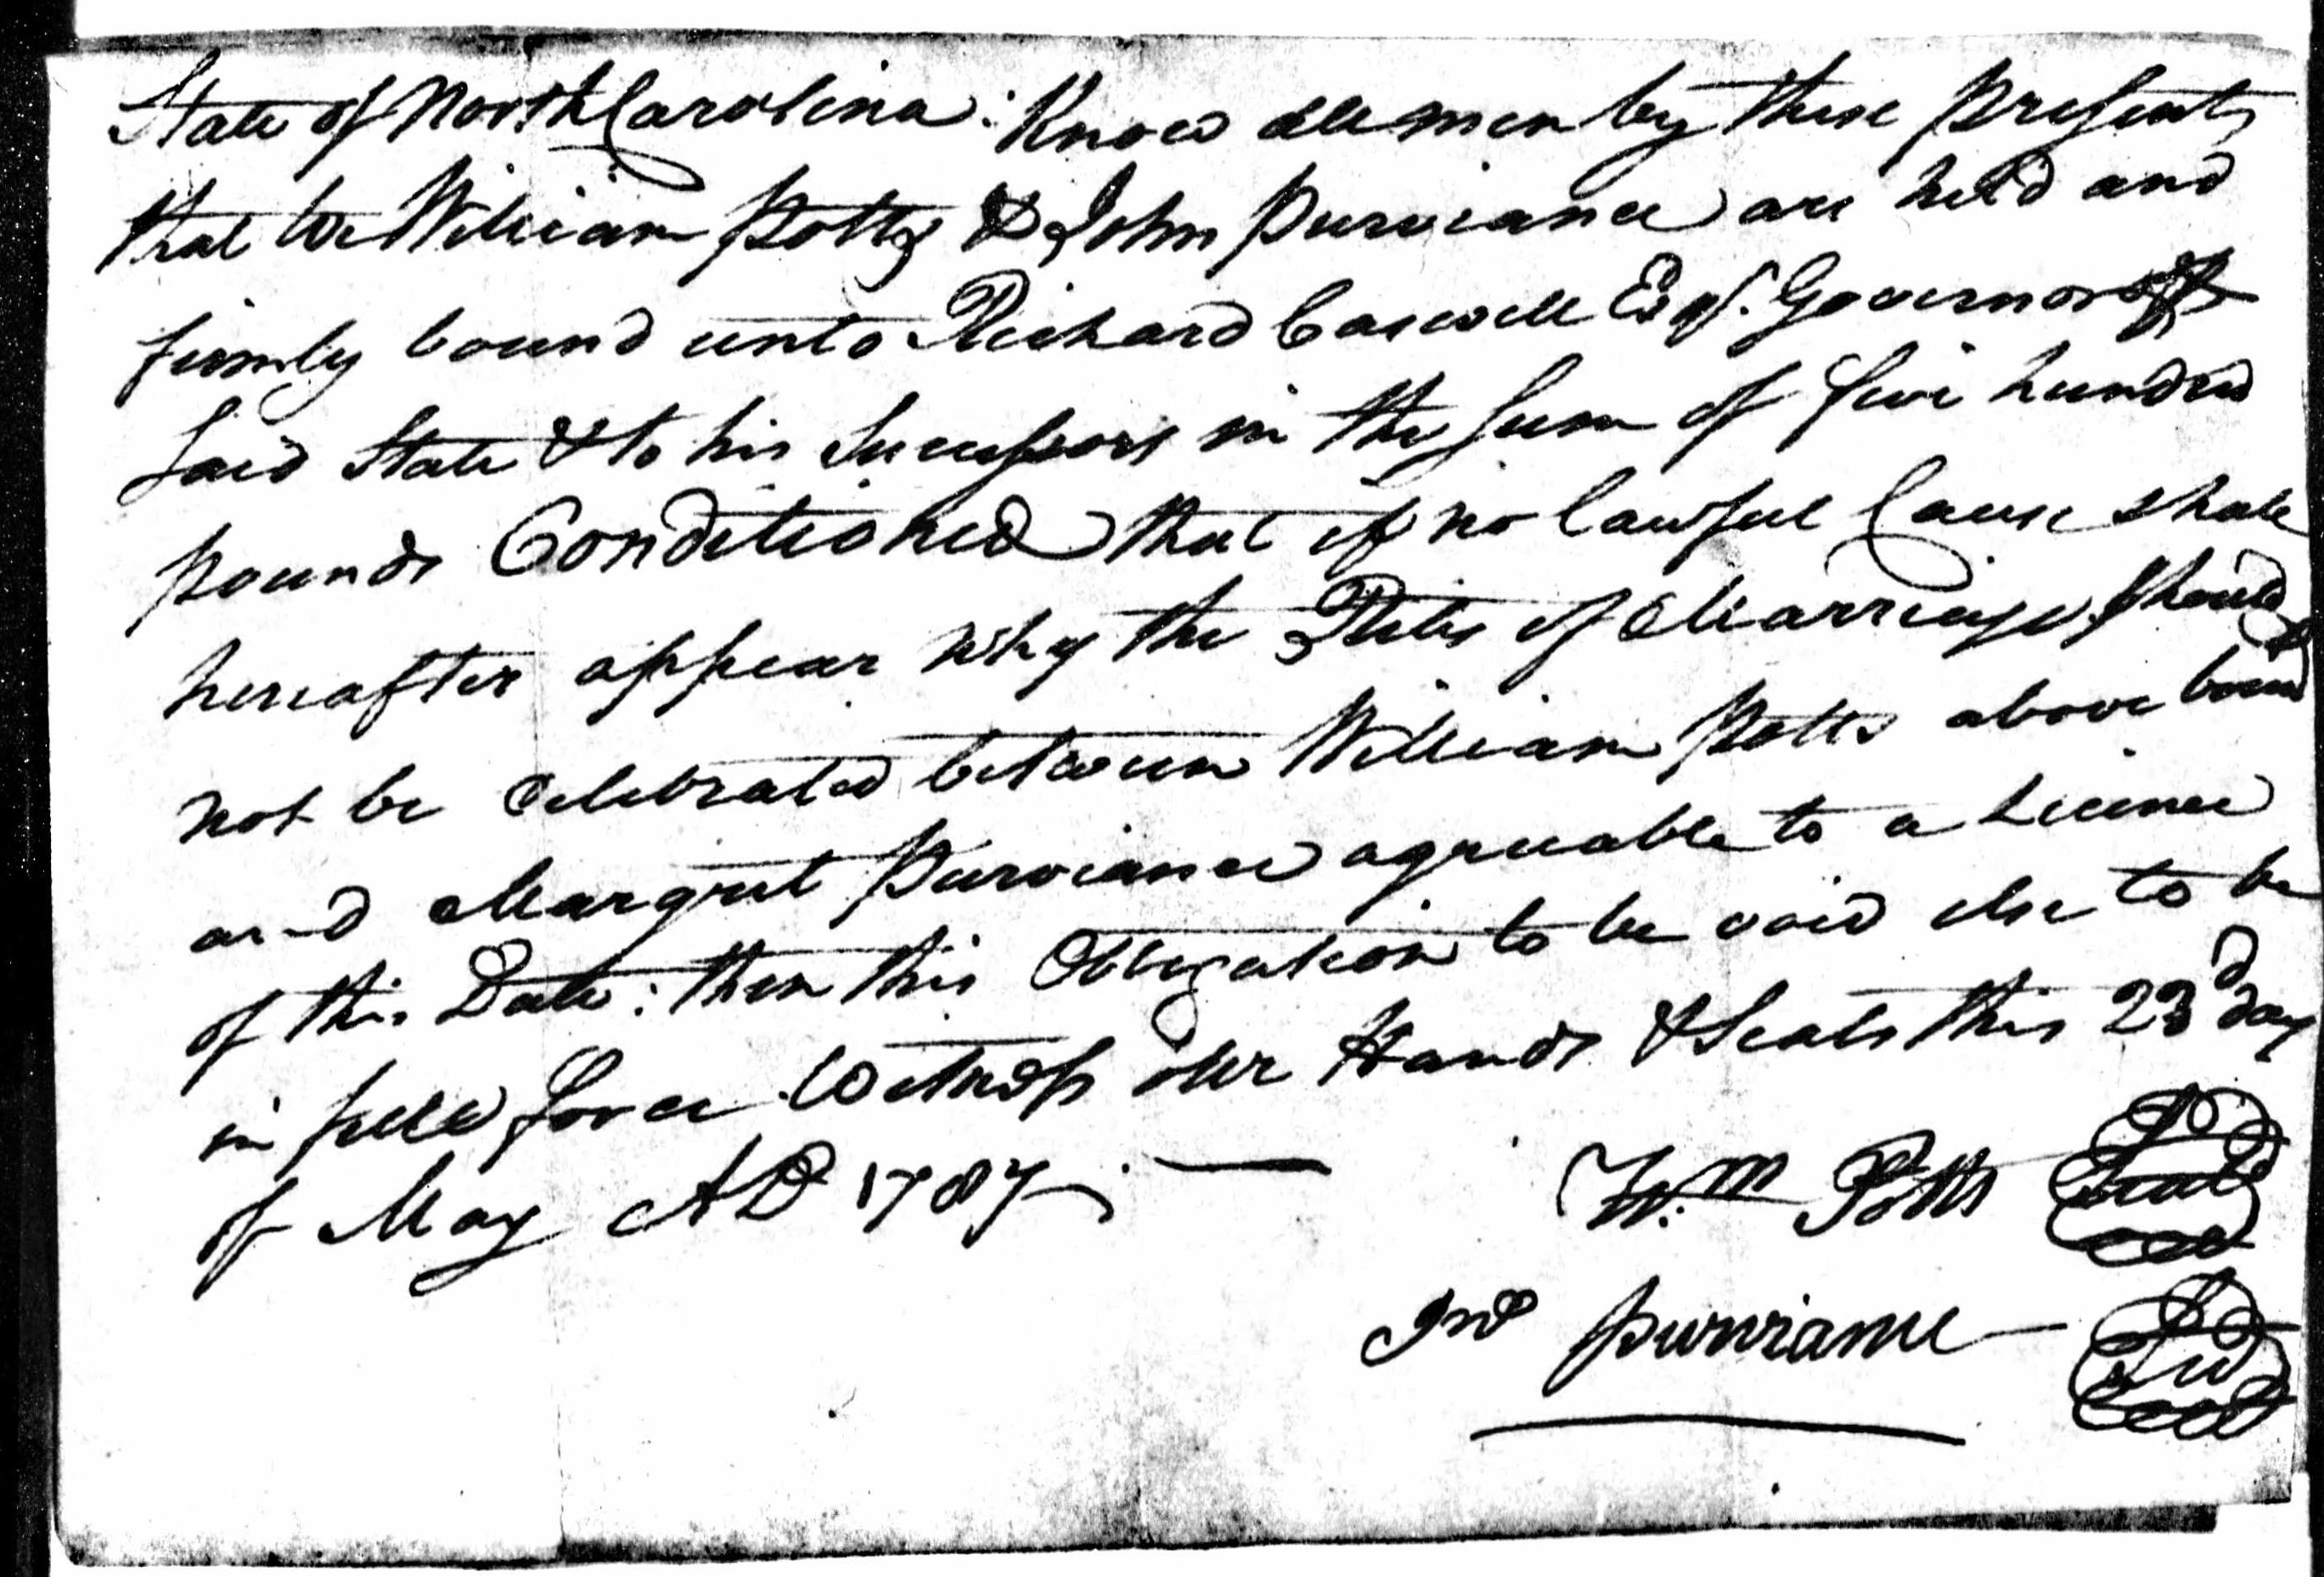 State of North Carolina: Know all men by these presents
that We William Potts & John Purviance are held and
firmly bound unto Richard Caswell Esqr. Governor of
said State & to his Successors in the sum of five hundred
pounds Conditioned that if no lawful Cause shall
hereafter appear why the Rites of Marriage should
not be Celebrated between William Potts above bound
and Margret Purviance agreeable to a Licence
of this Date: then this Obligation to be void else to be
in full force Witness our Hands & Seals this 23d day
of May AD 1787
Wm Potts Seal
Jno purviance